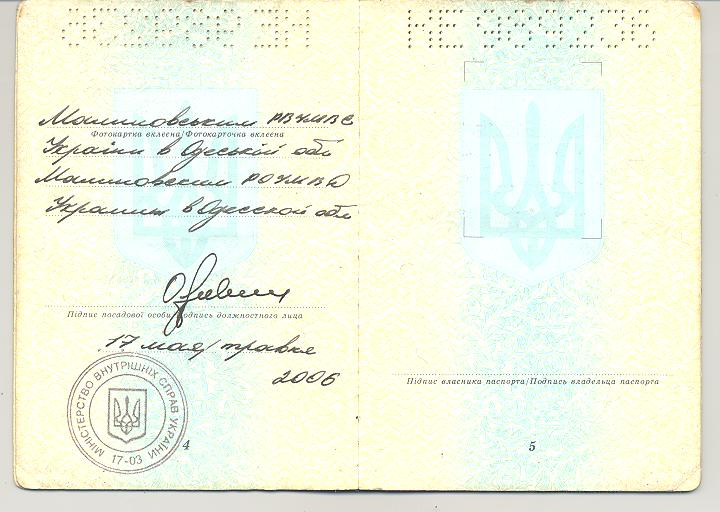 Малиновським РВ УМВС
Фотокартка вклеєна/Фотокарточка вклеена
України в Одеській обл
Малиновским РО УМВД
Украины в Одесской обл
Підпис посадової особи/Подпись должностного лица
17 мая/травня
2006
МІНІСТЕРСТВО ВНУТРІШНІХ СПРАВ УКРАЇНИ
17-03
4
КЕ
Підпис власника паспорта/Подпись владельца паспорта
5